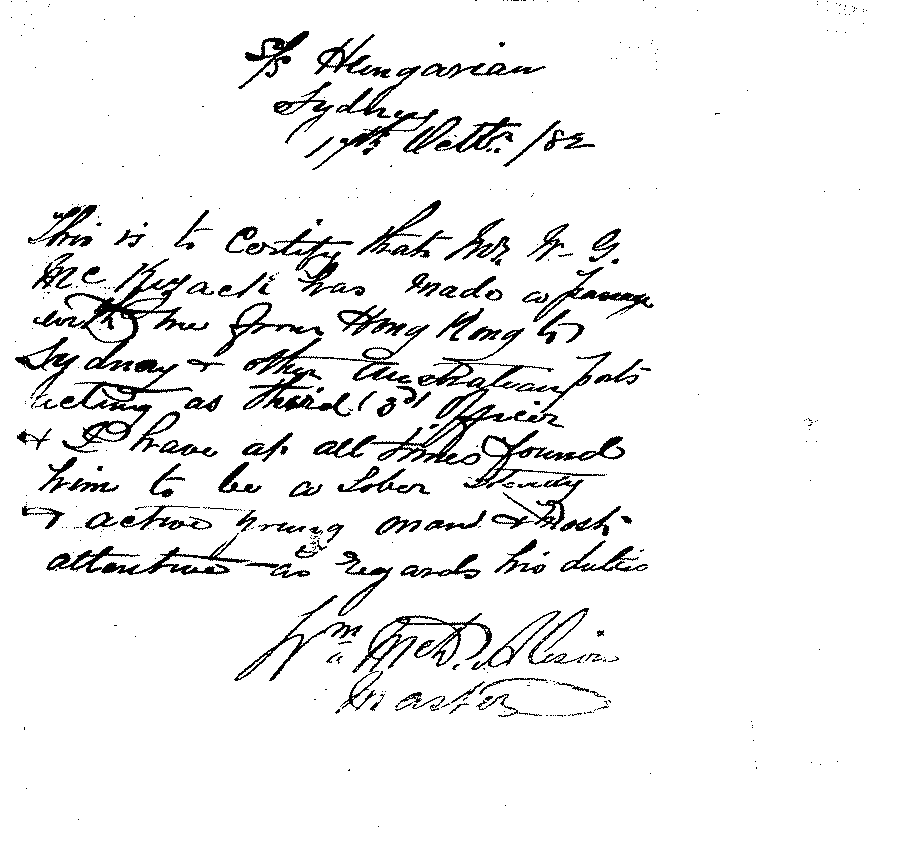 S/S Hungarian
Sydney
17th Octbr /82
This is to Certify that Mr. W. G.
Mc has made a passage
with me from Hong Kong to
Sydney & other Australian ports
acting as third (3rd) Officer
& I have at all times found
him to be a Sober Steady
& active young man & most
attentive as regards his duties
Wm McD.
Master